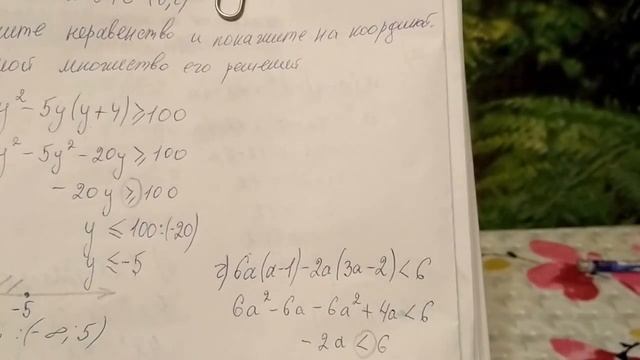 неравенство и покажите на координат.
множество его решений
y² - 5y(y+4) ≥ 100
y² - 5y² - 20y ≥ 100
- 20y ≥ 100
y ≤ 100:(-20)
y ≤ -5
-5
:(-∞; 5)
г) 6a(a-1) - 2a(3a-2) < 6
6a² - 6a - 6a² + 4a < 6
- 2a < 6